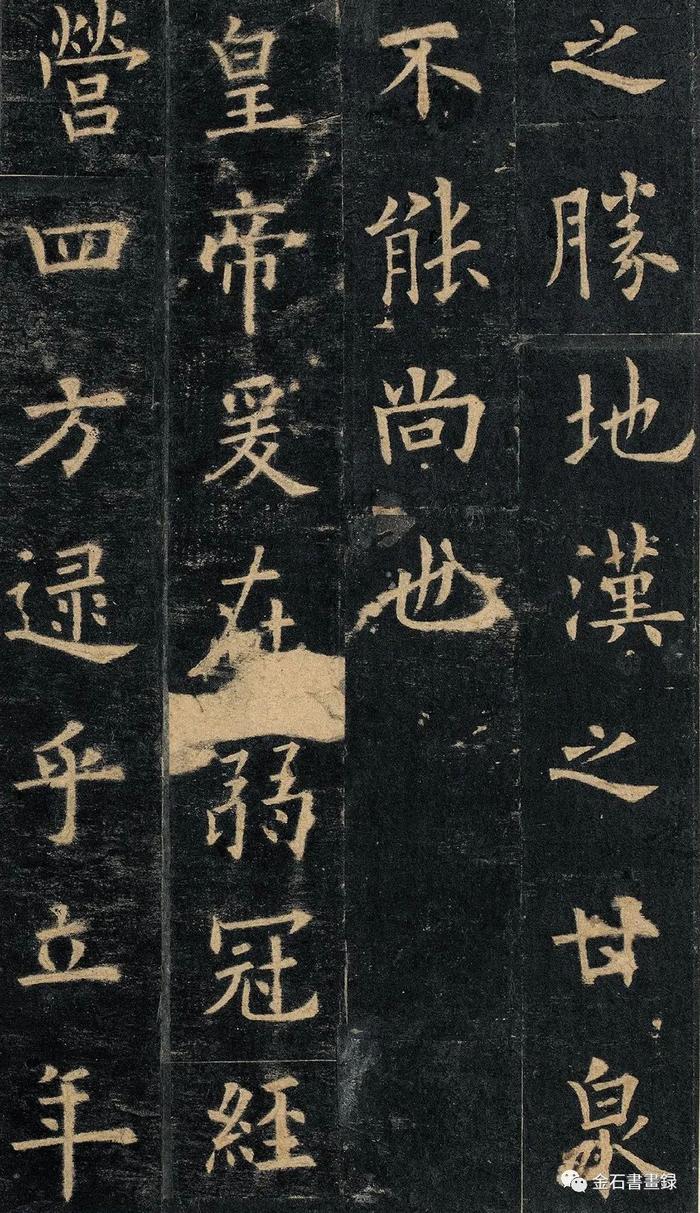 之勝地漢之甘泉
不能尚也
皇帝爰在弱冠經
營四方逯乎立年
金石書畫録